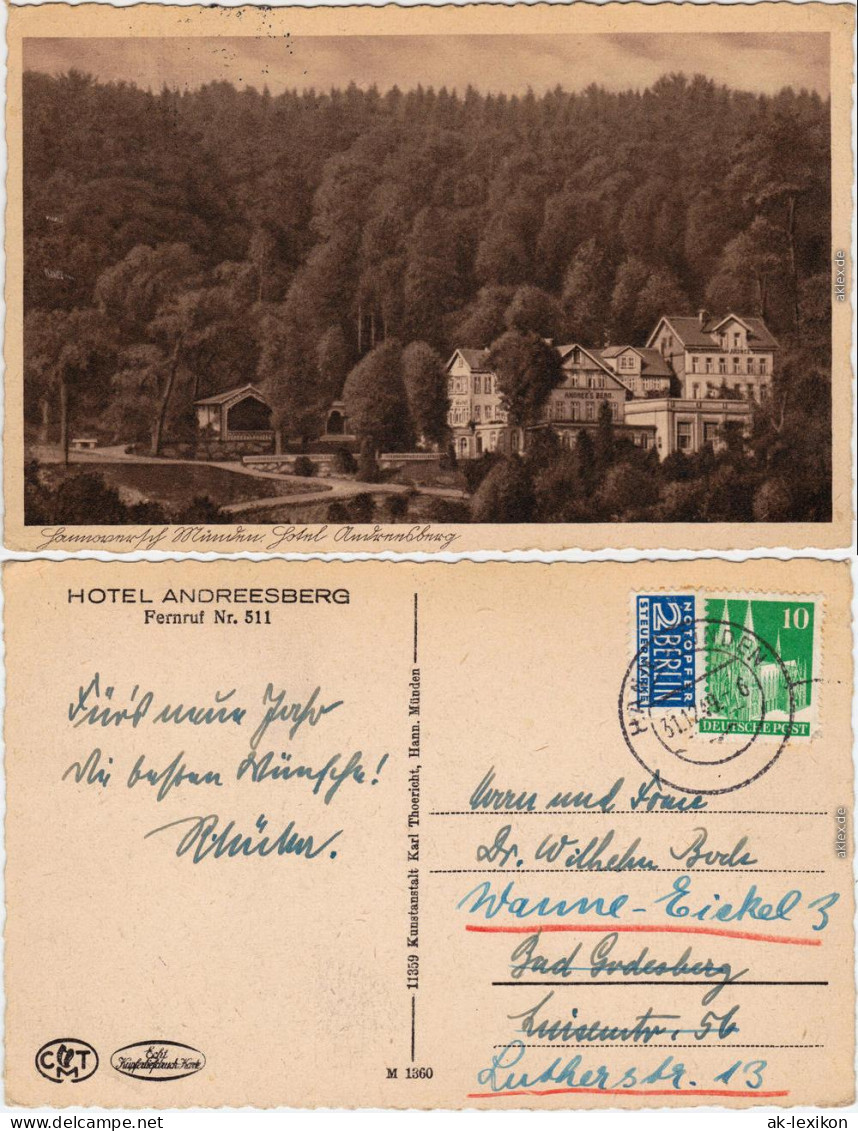 ANDREE'S BERG.
Hannoversch Münden. Hotel Andreesberg
HOTEL ANDREESBERG
Fernruf Nr. 511
Für's neue Jahr
die besten Wünsche!
11359 Kunstanstalt Karl Thoericht, Hann. Münden
NOTOPFER
2 BERLIN
STEUERMARKE
10
DEUTSCHE POST
HANN. MÜNDEN
31.12.49
Dr. Wilhelm Bode
Wanne-Eickel 3
Bad Godesberg
Luisenstr. 56
Lutherstr. 13
CMT
Echt
Kupfertiefdruck-Karte
M 1360
aklex.de
aklex.de
www.delcampe.net
ak-lexikon